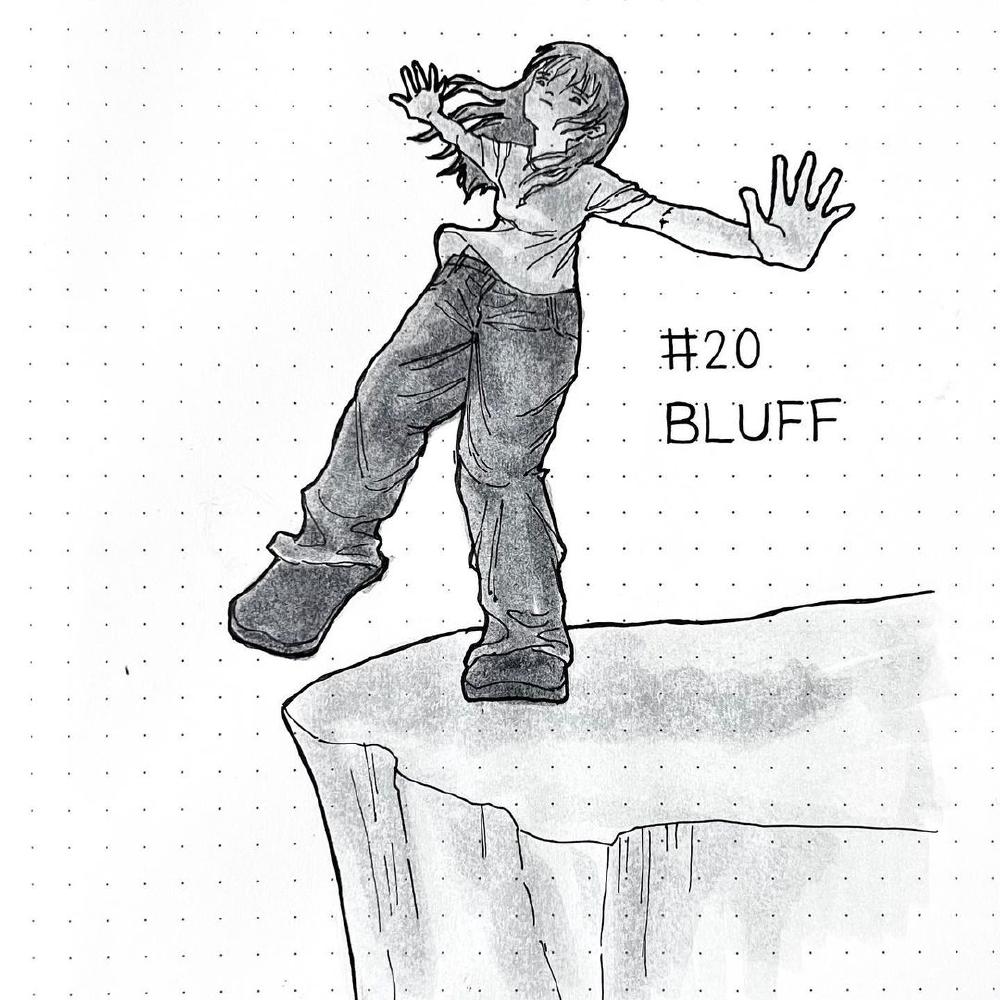 #20
BLUFF